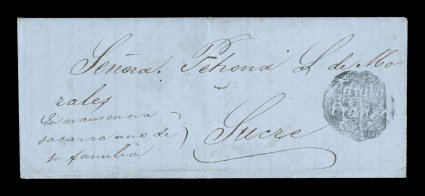 Señora. Petrona L de Mo
rales
En mi ausencia
sacara uno de
su familia
Sucre